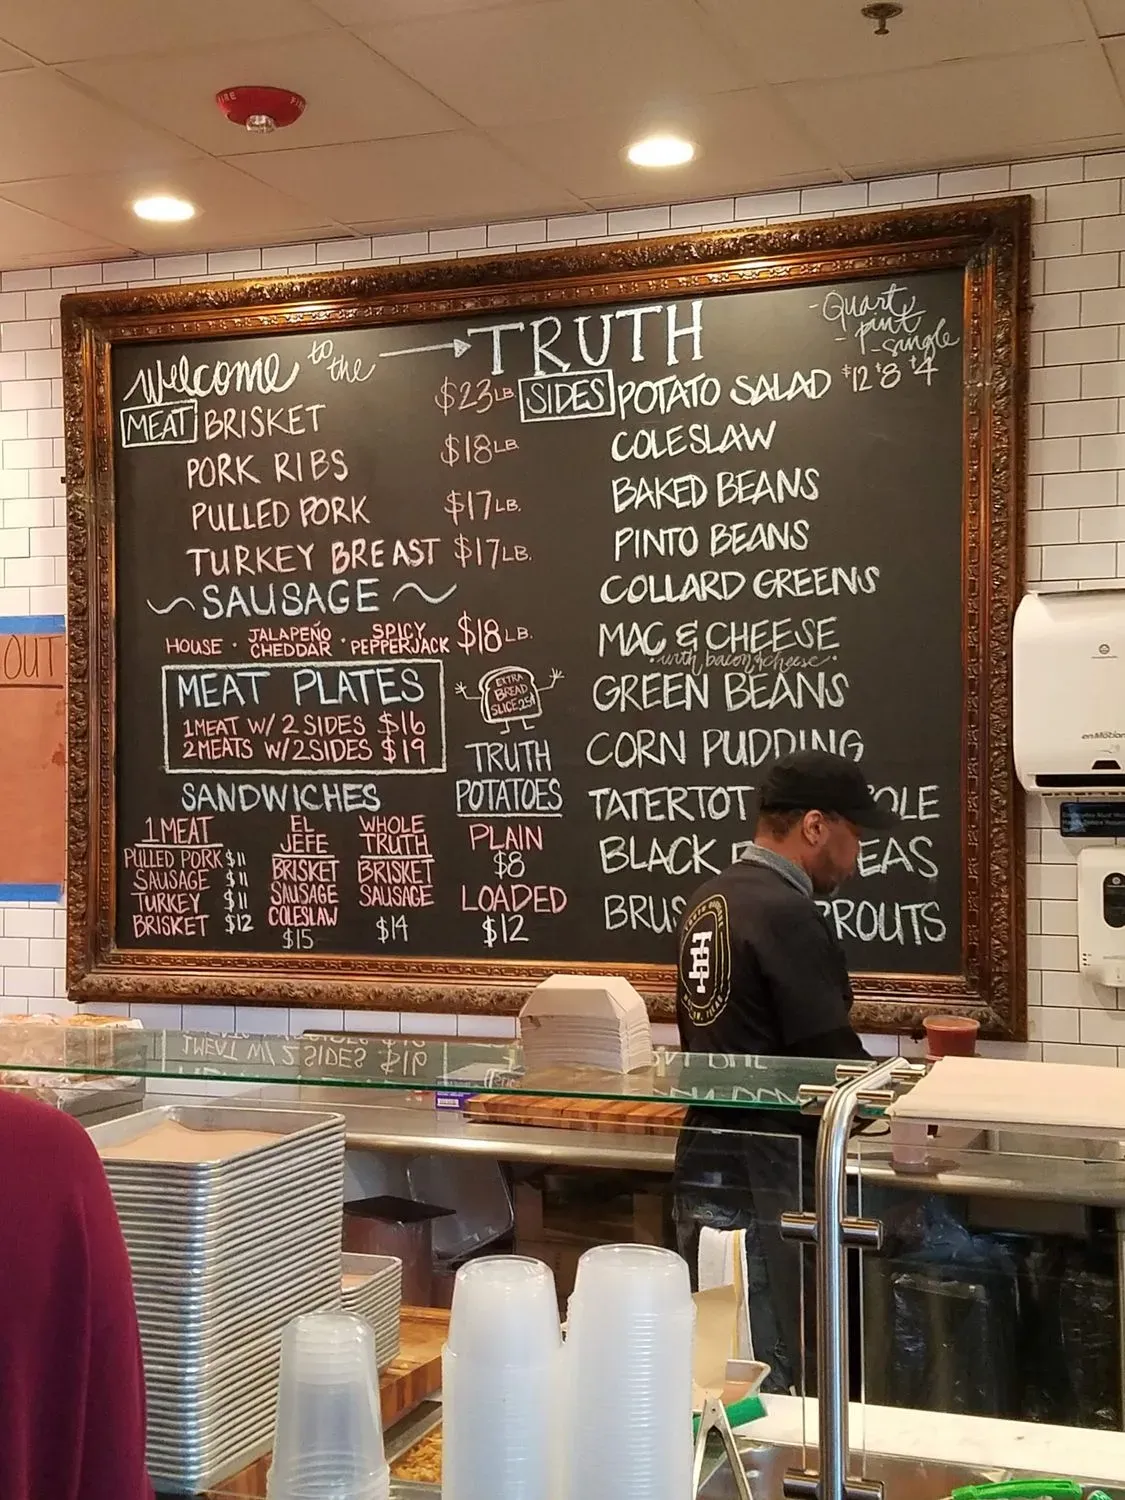 FIRE
Welcome to the → TRUTH
- Quart
- pint
- single
$12 $8 $4
MEAT BRISKET $23 LB.
PORK RIBS $18 LB
PULLED PORK $17 LB.
TURKEY BREAST $17 LB.
~SAUSAGE~
HOUSE · JALAPEÑO CHEDDAR · SPICY PEPPERJACK $18 LB.
MEAT PLATES
1 MEAT W/ 2 SIDES $16
2 MEATS W/ 2 SIDES $19
EXTRA
BREAD
SLICE 25¢
SANDWICHES
1 MEAT
PULLED PORK $11
SAUSAGE $11
TURKEY $11
BRISKET $12
EL
JEFE
BRISKET
SAUSAGE
COLESLAW
$15
WHOLE
TRUTH
BRISKET
SAUSAGE
$14
TRUTH
POTATOES
PLAIN
$8
LOADED
$12
SIDES POTATO SALAD
COLESLAW
BAKED BEANS
PINTO BEANS
COLLARD GREENS
MAC & CHEESE
· with bacon & cheese ·
GREEN BEANS
CORN PUDDING
TATERTOT OLE
BLACK EAS
BRUS ROUTS
OUT
enMotion
1 MEAT W/ 2 SIDES $16